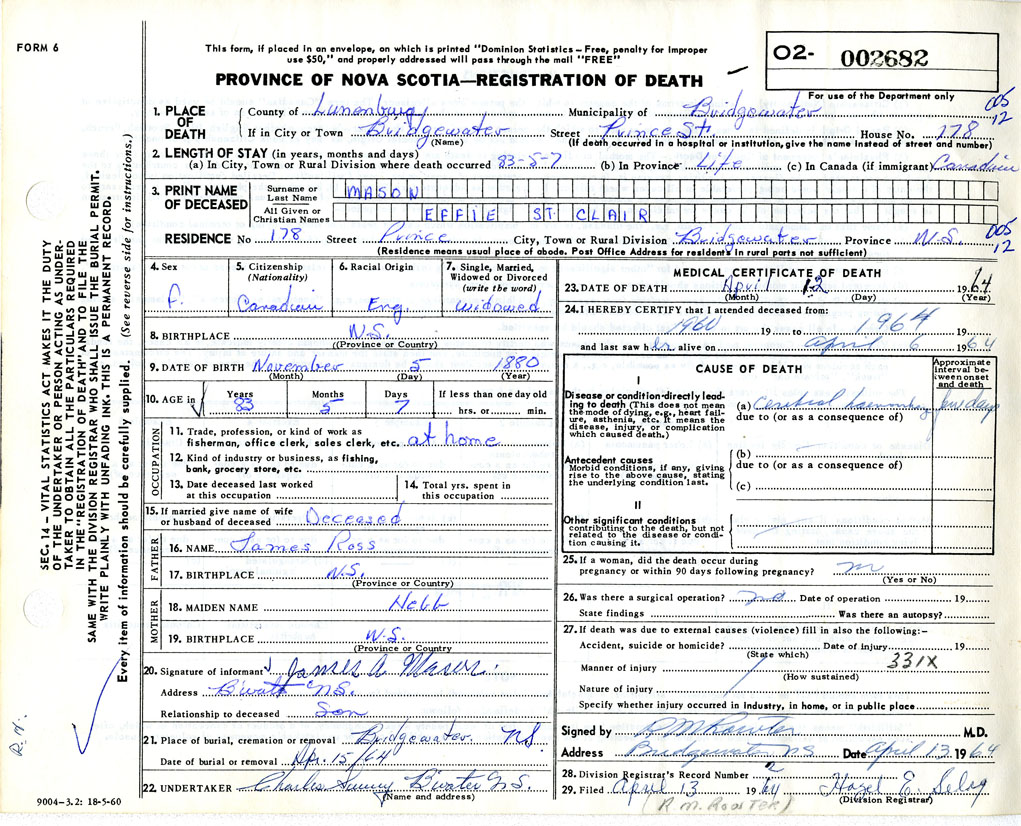 FORM 6
This form, if placed in an envelope, on which is printed "Dominion Statistics – Free, penalty for improper
use $50," and properly addressed will pass through the mail "FREE"
O2- 002682
PROVINCE OF NOVA SCOTIA—REGISTRATION OF DEATH
For use of the Department only
1. PLACE OF DEATH
County of Lunenburg Municipality of Bridgewater 005 12
If in City or Town Bridgewater Street Prince St House No. 178
(Name) (If death occurred in a hospital or institution, give the name instead of street and number)
2. LENGTH OF STAY (in years, months and days)
(a) In City, Town or Rural Division where death occurred 83-5-7 (b) In Province Life (c) In Canada (if immigrant) Canadian
3. PRINT NAME OF DECEASED
Surname or Last Name MASON
All Given or Christian Names EFFIE ST. CLAIR
RESIDENCE No 178 Street Prince City, Town or Rural Division Bridgewater Province N.S. 005 12
(Residence means usual place of abode. Post Office Address for residents in rural parts not sufficient)
4. Sex F.
5. Citizenship (Nationality) Canadian
6. Racial Origin Eng.
7. Single, Married, Widowed or Divorced (write the word) widowed
8. BIRTHPLACE N.S.
((Province or Country)
9. DATE OF BIRTH November 5 1880
(Month) (Day) (Year)
10. AGE in Years 83 Months 5 Days 7 If less than one day old
hrs. or min.
OCCUPATION
11. Trade, profession, or kind of work as
fisherman, office clerk, sales clerk, etc. at home
12. Kind of industry or business, as fishing,
bank, grocery store, etc.
13. Date deceased last worked
at this occupation
14. Total yrs. spent in
this occupation
15. If married give name of wife
or husband of deceased Deceased
FATHER
16. NAME James Ross
17. BIRTHPLACE N.S.
(Province or Country)
MOTHER
18. MAIDEN NAME Hebb
19. BIRTHPLACE N.S.
(Province or Country
20. Signature of informant James A Mason.
Address B'water NS.
Relationship to deceased Son
21. Place of burial, cremation or removal Bridgewater. NS.
Date of burial or removal Apr. 15/64
22. UNDERTAKER Charles B'water N.S.
(Name and address)
9004-3.2: 18-5-60
MEDICAL CERTIFICATE OF DEATH
23. DATE OF DEATH April 12 1964
(Month) (Day) (Year)
24. I HEREBY CERTIFY that I attended deceased from:
1960 19 to 1964 19
and last saw her alive on April 6 1964
CAUSE OF DEATH
Approximate interval between onset and death
I
Disease or condition directly leading to death (This does not mean the mode of dying, e.g., heart failure, asthenia, etc. It means the disease, injury, or complication which caused death.)
(a) Cerebral haemorrhage few days
due to (or as a consequence of)
Antecedent causes
Morbid conditions, if any, giving rise to the above cause, stating the underlying condition last.
(b)
due to (or as a consequence of)
(c)
II
Other significant conditions
contributing to the death, but not related to the disease or condition causing it.
25. If a woman, did the death occur during
pregnancy or within 90 days following pregnancy?
(Yes or No)
26. Was there a surgical operation? no Date of operation 19
State findings Was there an autopsy?
27. If death was due to external causes (violence) fill in also the following:–
Accident, suicide or homicide? Date of injury 19
(State which)
331X
Manner of injury
(How sustained)
Nature of injury
Specify whether injury occurred in industry, in home, or in public place
Signed by R M Rowter M.D.
Address Bridgewater NS Date April 13 1964
28. Division Registrar's Record Number 2
29. Filed April 13 1964 Hazel E. Selig
(Division Registrar)
(R.M. ROWTER)
SEC. 14 – VITAL STATISTICS ACT MAKES IT THE DUTY
OF THE UNDERTAKER OR PERSON ACTING AS UNDER-
TAKER TO OBTAIN ALL THE PARTICULARS REQUIRED
IN THE "REGISTRATION OF DEATH" AND TO FILE THE
SAME WITH THE DIVISION REGISTRAR WHO SHALL ISSUE THE BURIAL PERMIT.
WRITE PLAINLY WITH UNFADING INK. THIS IS A PERMANENT RECORD.
Every item of information should be carefully supplied. (See reverse side for instructions.)